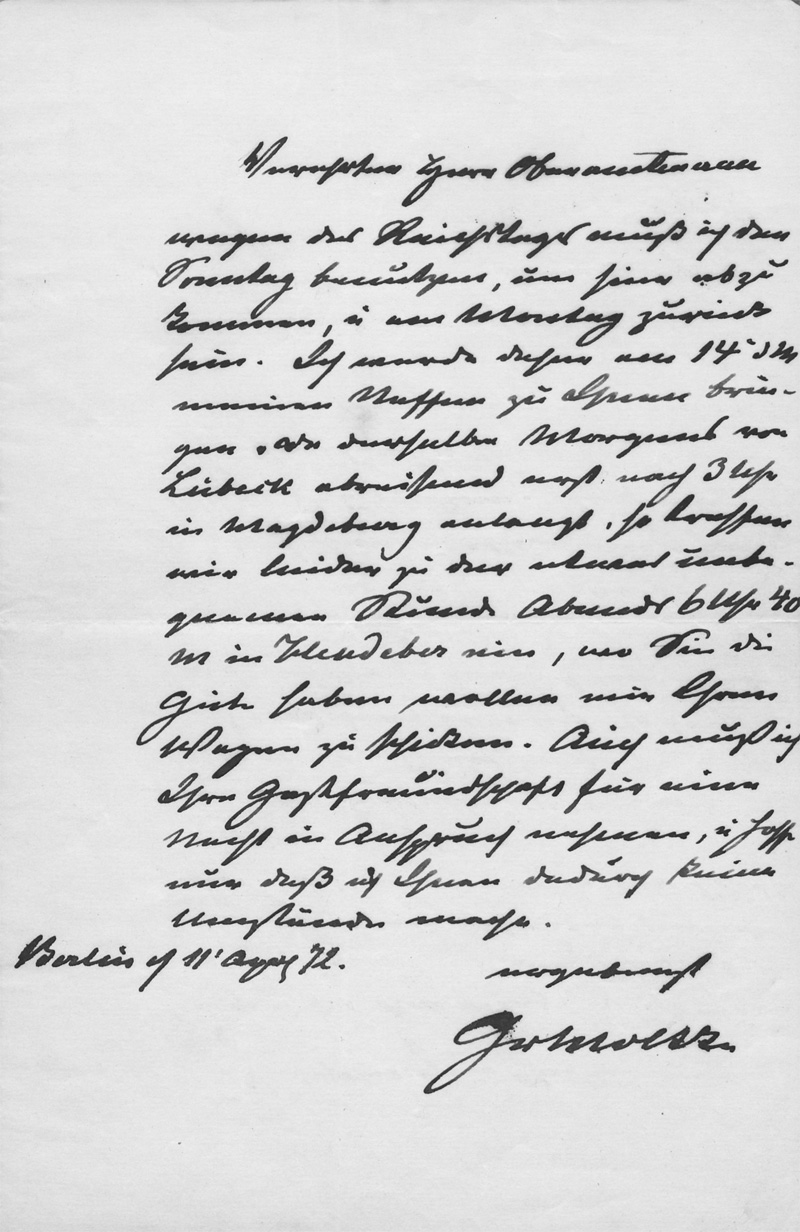 Verehrter Herr Oberamtmann
wegen des Reichstags muß ich den
Sonntag benutzen, um hier abzu
kommen, u am Montag zurück
sein. Ich werde daher am 14' d M
meinen Neffen zu Ihnen brin-
gen. Da derselbe Morgens von
Lübeck abreisend erst nach 3 Uhr
in Magdeburg anlangt, so treffen
wir leider zu der etwas unbe-
quemen Stunde Abends 6 Uhr 40
M in Heudeber ein, wo Sie die
Güte haben wollen mir Ihren
Wagen zu schicken. Auch muß ich
Ihre Gastfreundschaft für eine
Nacht in Anspruch nehmen, u hoffe
nur daß ich Ihnen dadurch keine
Umstände mache.
Berlin d 11' April 72.
ergebenst
Gr Moltke